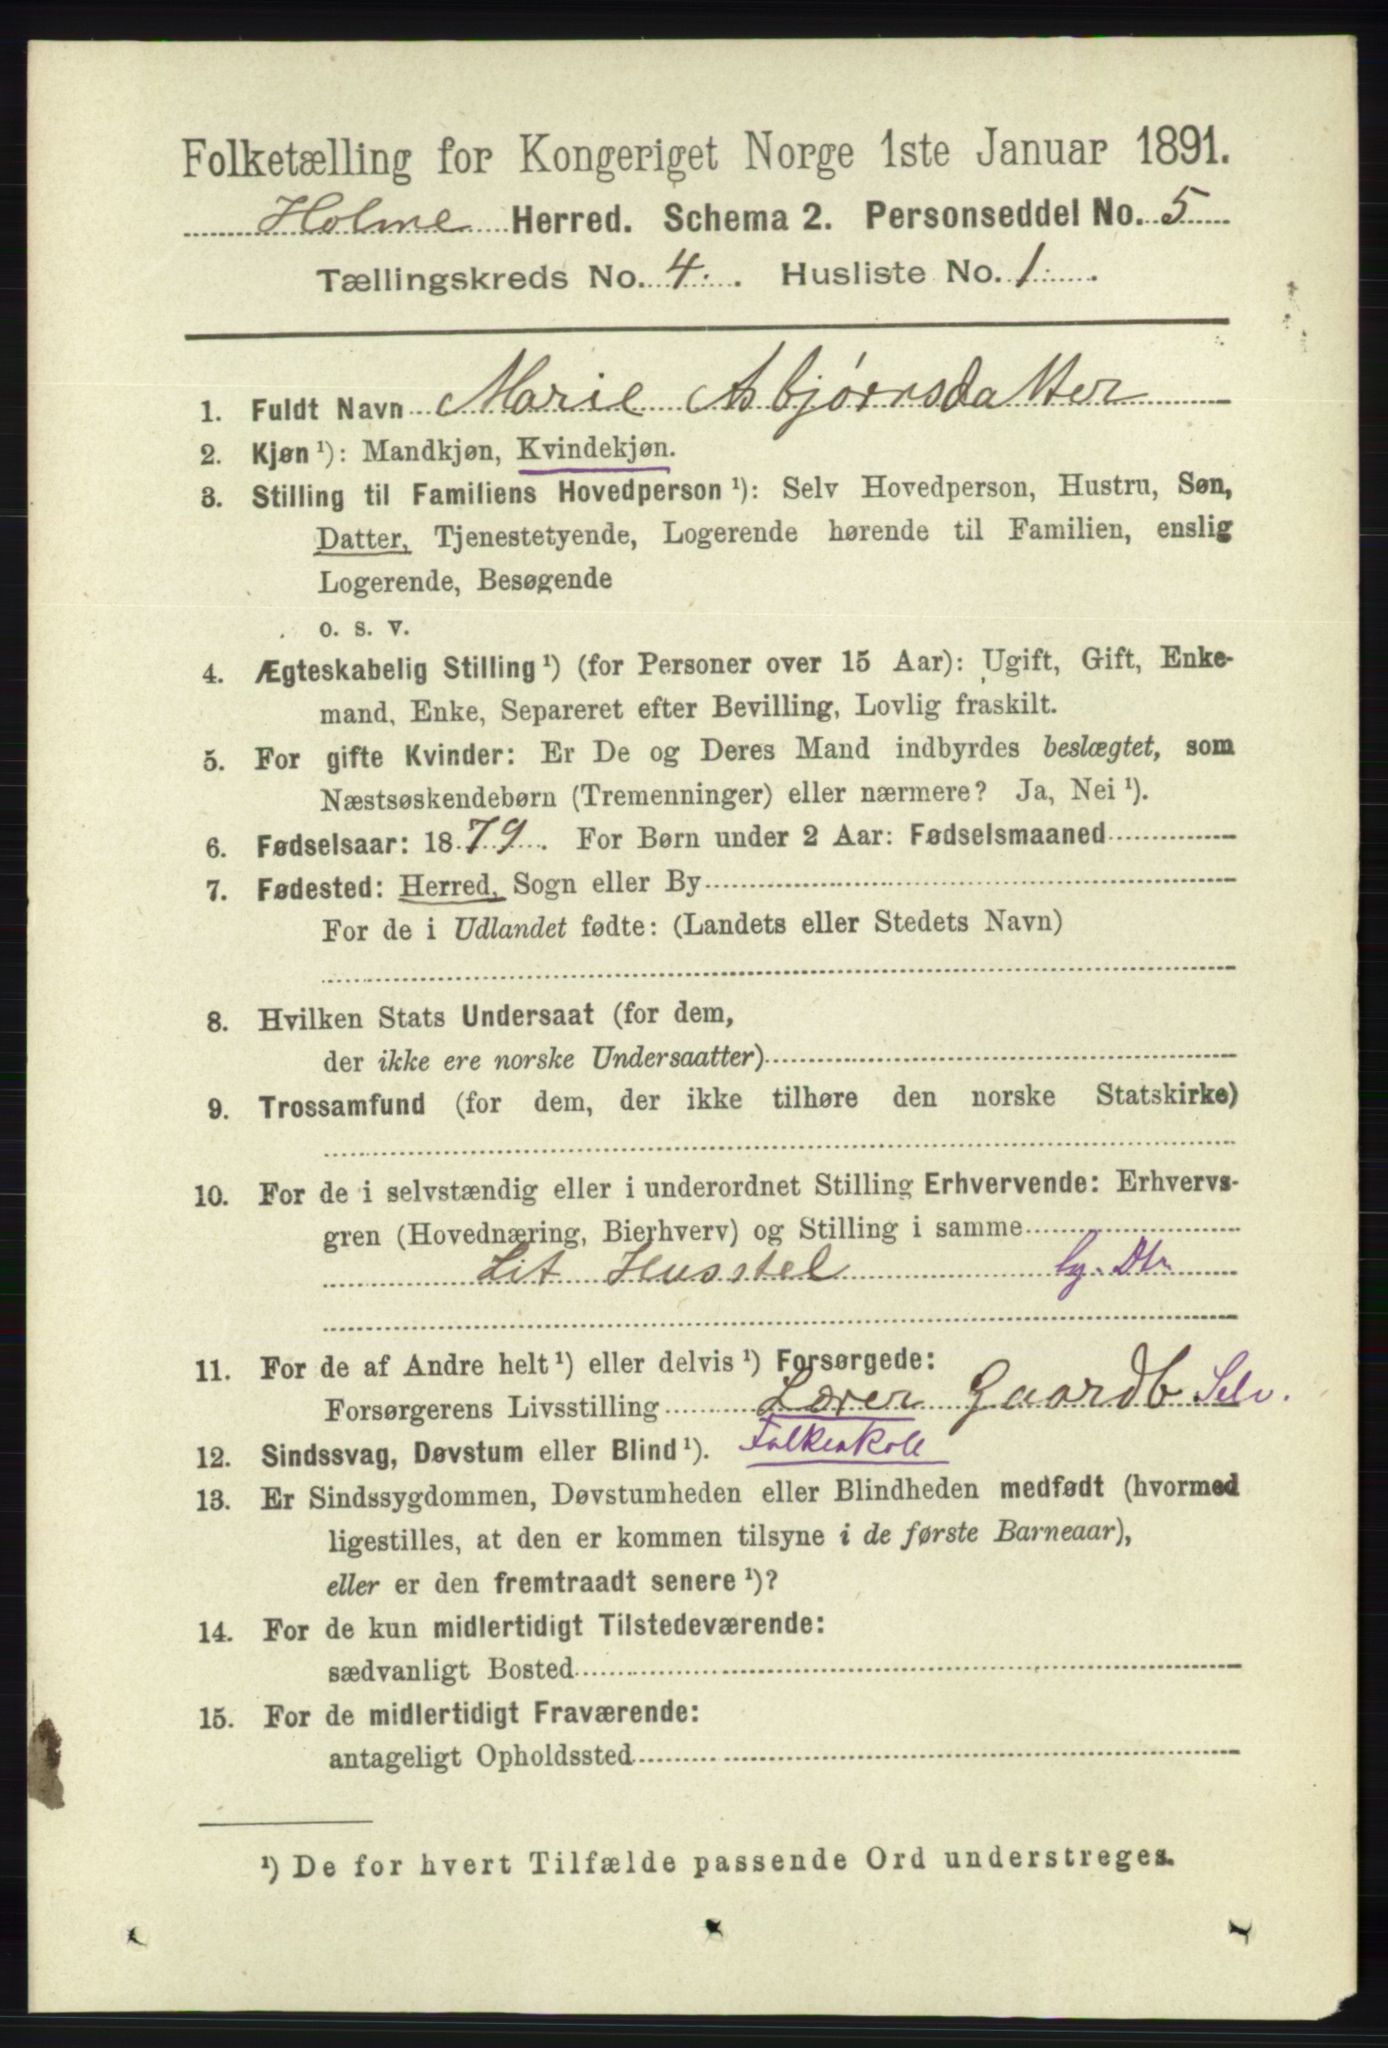 Folketælling for Kongeriget Norge 1ste Januar 1891.
Holme Herred. Schema 2. Personseddel No. 5
Tællingskreds No. 4. Husliste No. 1.
1. Fuldt Navn Marie Asbjørnsdatter
2. Kjøn ¹): Mandkjøn, Kvindekjøn.
3. Stilling til Familiens Hovedperson ¹): Selv Hovedperson, Hustru, Søn,
Datter, Tjenestetyende, Logerende hørende til Familien, enslig
Logerende, Besøgende
o. s. v.
4. Ægteskabelig Stilling ¹) (for Personer over 15 Aar): Ugift, Gift, Enke-
mand, Enke, Separeret efter Bevilling, Lovlig fraskilt.
5. For gifte Kvinder: Er De og Deres Mand indbyrdes beslægtet, som
Næstsøskendebørn (Tremenninger) eller nærmere? Ja, Nei ¹).
6. Fødselsaar: 1879. For Børn under 2 Aar: Fødselsmaaned
7. Fødested: Herred, Sogn eller By
For de i Udlandet fødte: (Landets eller Stedets Navn)
8. Hvilken Stats Undersaat (for dem,
der ikke ere norske Undersaatter)
9. Trossamfund (for dem, der ikke tilhøre den norske Statskirke)
10. For de i selvstændig eller i underordnet Stilling Erhvervende: Erhvervs-
gren (Hovednæring, Bierhverv) og Stilling i samme
Lit Husstel
11. For de af Andre helt ¹) eller delvis ¹) Forsørgede:
Forsørgerens Livsstilling Lærer Gaardb Selv.
12. Sindssvag, Døvstum eller Blind ¹). Folkeskole
13. Er Sindssygdommen, Døvstumheden eller Blindheden medfødt (hvormed
ligestilles, at den er kommen tilsyne i de første Barneaar),
eller er den fremtraadt senere ¹)?
14. For de kun midlertidigt Tilstedeværende:
sædvanligt Bosted
15. For de midlertidigt Fraværende:
antageligt Opholdssted
¹) De for hvert Tilfælde passende Ord understreges.